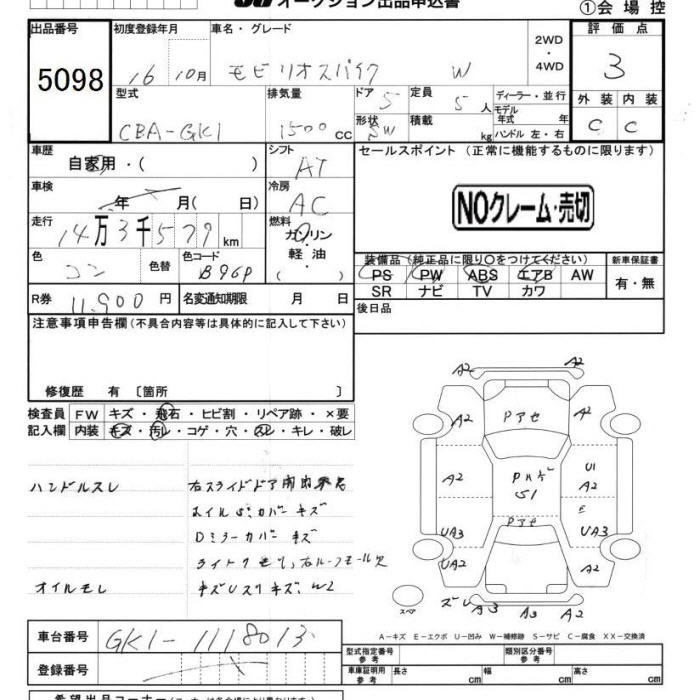 オークション出品申込書
①会場控
出品番号 5098
初度登録年月 16 10月
車名・グレード モビリオスパイク W
2WD
・
4WD
評価点 3
型式 CBA-GK1
排気量 1500cc
ドア 5
形状 SW
定員 5人
積載 kg
ディーラー・並行
モデル年式 年
ハンドル 左・右
外装 内装
C C
車歴 自家用・( )
シフト AT
セールスポイント (正常に機能するものに限ります)
NOクレーム・売切
車検 年 月( 日)
冷房 AC
走行 14万3千579km
燃料 ガソリン
軽油
・( )
色 コン 色替
色コード B96P
装備品(純正品に限り○をつけてください)
PS PW ABS エアB AW
SR ナビ TV カワ
新車保証書
有・無
R券 11,900円
名変通知期限 月 日
後日品
注意事項申告欄(不具合内容等は具体的に記入して下さい)
修復歴 有〔箇所 〕
検査員 FW キズ・飛石・ヒビ割・リペア跡・×要
記入欄 内装 キズ・汚レ・コゲ・穴・スレ・キレ・破レ
ハンドルスレ 右スライドドア
ホイルS/カバーキズ
Dミラーカバーキズ
オイルモレ
A2 A2
A2 Pアセ A2
A2 U1
A2
S1 E
UA3 Pアセ UA3
UA2 A2
スペア A3 A3 A2
A-キズ E-エクボ U-凹み W-補修跡 S-サビ C-腐食 XX-交換済
車台番号 GK1-1118013
登録番号
型式指定番号 参考
類別区分番号 参考
車庫証明用 参考 長さ cm 幅 cm 高さ cm
希望出品コーナー